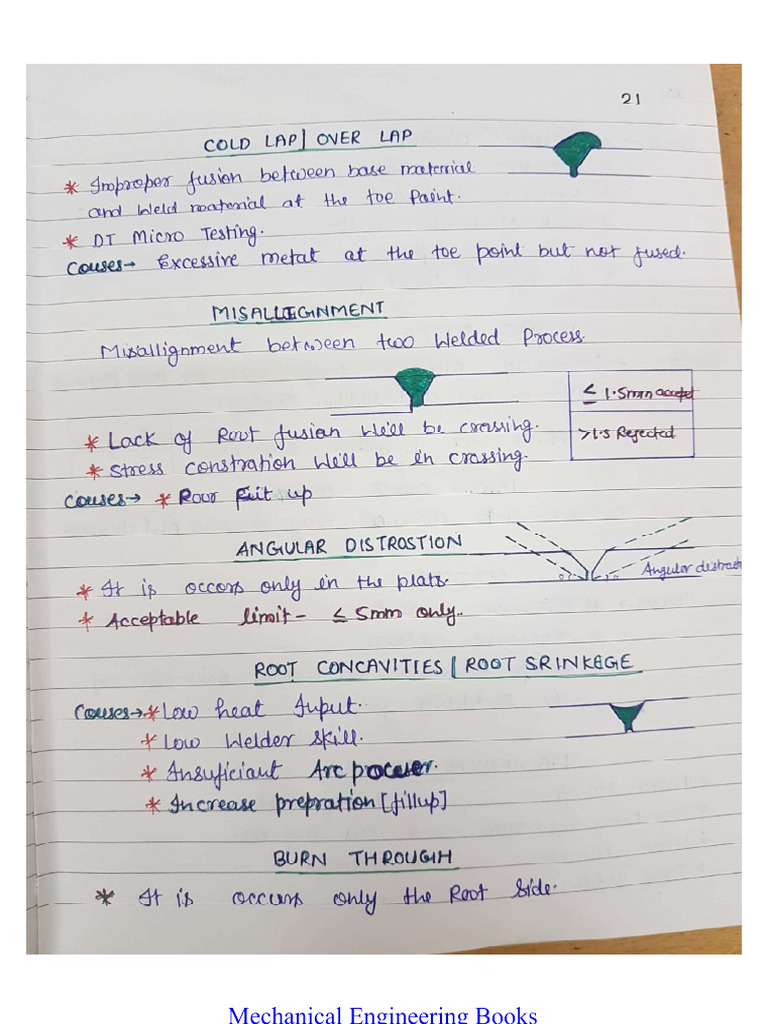 21
COLD LAP | OVER LAP
* Improper fusion between base material
and weld material at the toe Paint.
* DT Micro Testing.
Couses→ Excessive metal at the toe point but not fused.
MISALLIGNMENT
Misallignment between two Welded Process.
≤ 1.5mm accept
>1.5 Rejected
* Lack of Root fusian We'll be crassing.
* Stress constration We'll be in crassing.
Couses→ * Poor Fit up
ANGULAR DISTROSTION
Angular distract
* It is occors only in the plats.
* Acceptable limit - ≤ 5mm only..
ROOT CONCAVITIES | ROOT SRINKEGE
Couses→ * Low heat Input.
* Low Welder Skill.
* Insuficiant Arc pocuer.
* Increase prepration [fillup]
BURN THROUGH
* It is occurs only the Root Side.
Mechanical Engineering Books